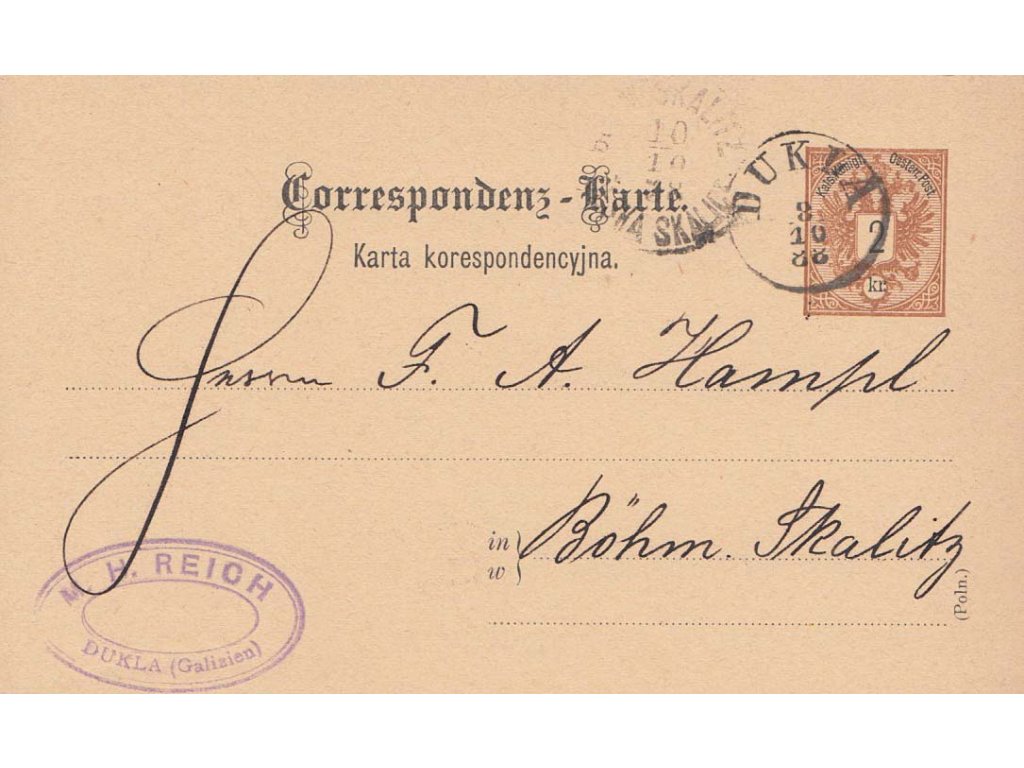 Correspondenz-Karte.
Karta korespondencyjna.
SKALITZ
10
10
SKALICE
DUKLA
8
10
88
Kais. Königl. Oesterr. Post
2
kr.
Herrn F. A. Hampl
in
w
Böhm. Skalitz
(Poln.)
M. H. REICH
DUKLA (Galizien)